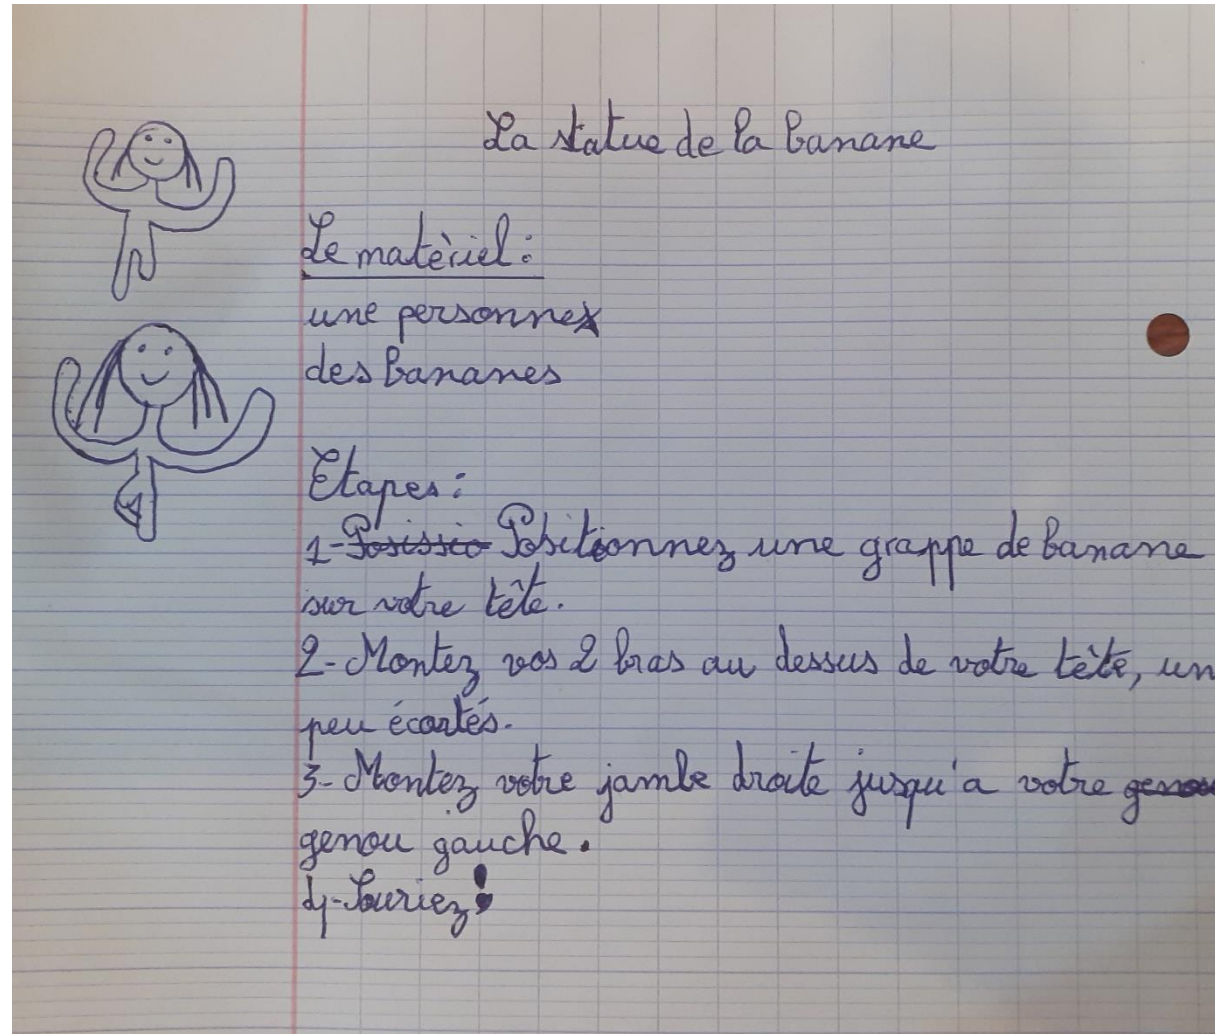 La statue de la banane
Le matèriel :
une personne
des bananes
Etapes :
1- Posissio Positionnez une grappe de banane
sur votre tête.
2- Montez vos 2 bras au dessus de votre tête, un
peu écartés.
3- Montez votre jambe droite jusqu'a votre genou
genou gauche.
4- Souriez !